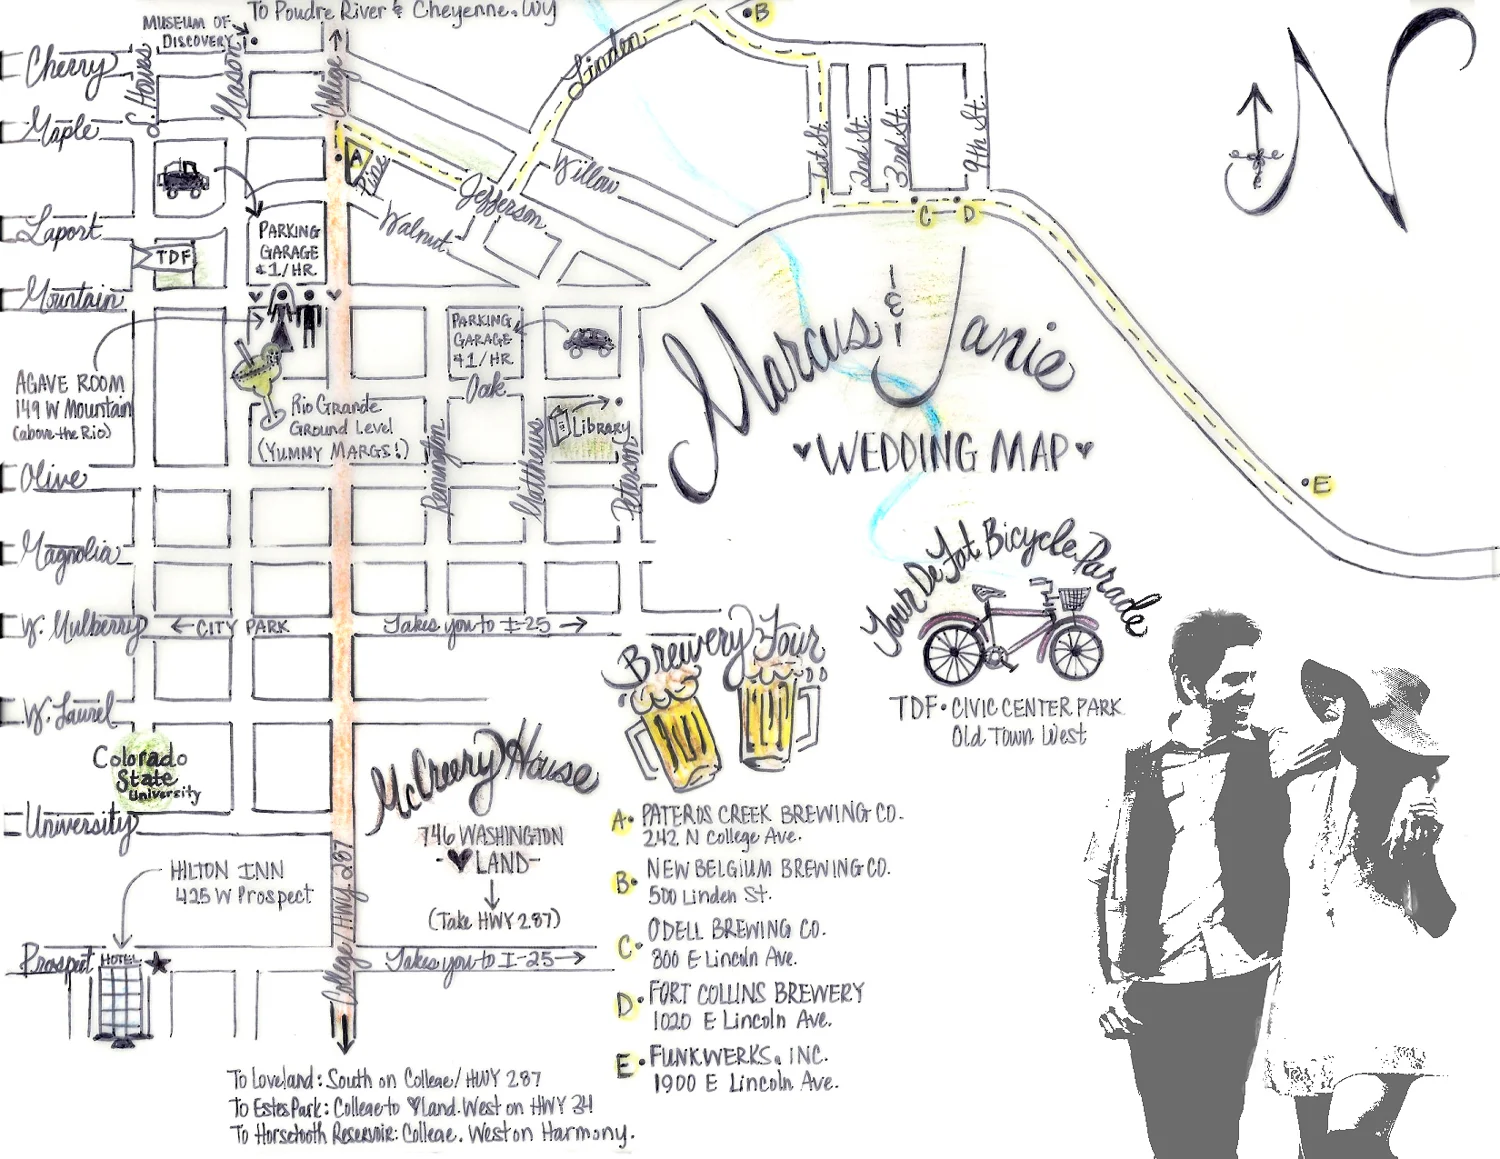 To Poudre River & Cheyenne, WY
MUSEUM OF
DISCOVERY
Cherry
Maple
Laport
Mountain
Olive
Magnolia
W. Mulberry
W. Laurel
University
Prospect
Mason
College
Linden
Willow
Jefferson
Pine
Walnut
1st St.
2nd St.
3rd St.
9th St.
N
A
B
C
D
E
TDF
PARKING
GARAGE
$1/HR.
PARKING
GARAGE
$1/HR.
Oak
Library
Remington
Matthews
Peterson
AGAVE ROOM
149 W Mountain
(above the Rio)
Rio Grande
Ground Level
(YUMMY MARGS!)
← CITY PARK
Takes you to I-25 →
Marcus & Janie
♥WEDDING MAP♥
Tour De Fat Bicycle Parade
TDF• CIVIC CENTER PARK
Old Town West
Colorado
State
University
McCreery House
746 WASHINGTON
-♥LAND-
(Take HWY 287)
HILTON INN
425 W Prospect
HOTEL
College/HWY. 287
Takes you to I-25→
Brewery Tour
A• PATEROS CREEK BREWING CO.
242 N College Ave.
B• NEW BELGIUM BREWING CO.
500 Linden St.
C• ODELL BREWING CO.
800 E Lincoln Ave.
D• FORT COLLINS BREWERY
1020 E Lincoln Ave.
E• FUNKWERKS, INC.
1900 E Lincoln Ave.
To Loveland: South on College/HWY 287
To Estes Park: College to ♥Land. West on HWY 34
To Horsetooth Reservoir: College. West on Harmony.